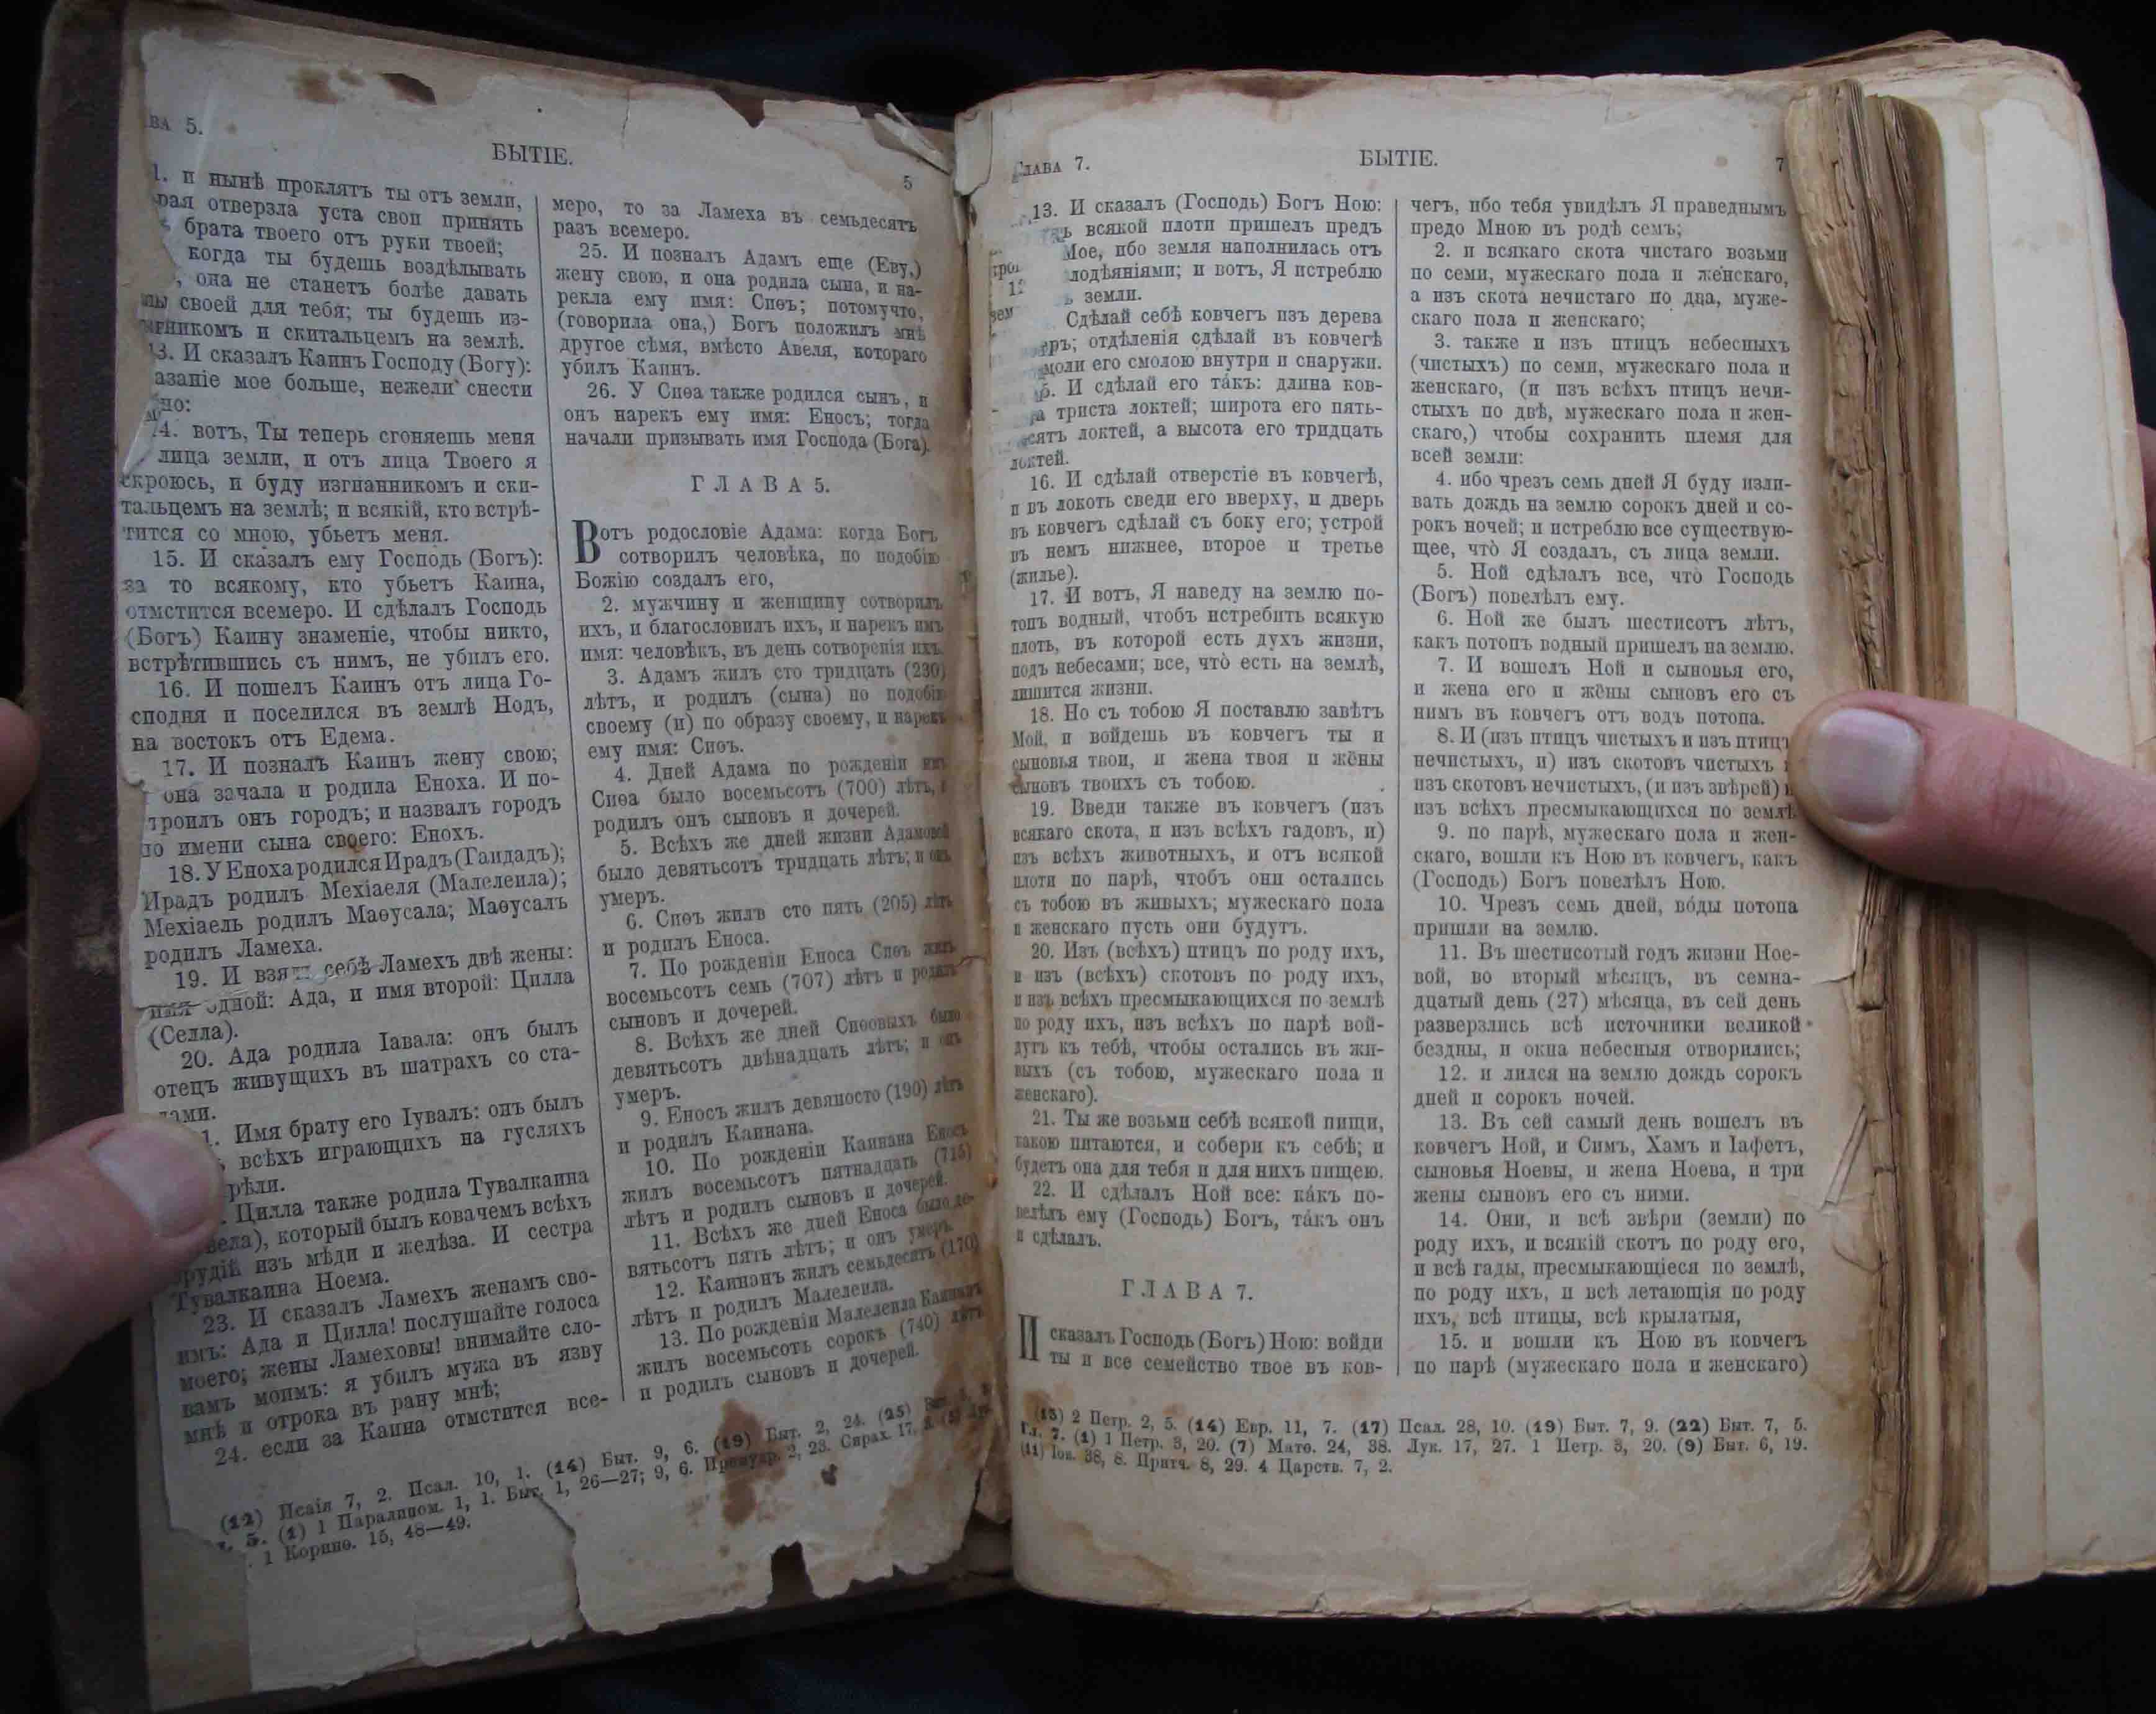 ВА 5.
БЫТІЕ.
5
1. и нынѣ проклятъ ты отъ земли,
рая отверзла уста свои принять
брата твоего отъ руки твоей;
когда ты будешь воздѣлывать
, она не станетъ болѣе давать
своей для тебя; ты будешь из-
никомъ и скитальцемъ на землѣ.
13. И сказалъ Каинъ Господу (Богу):
азаніе мое больше, нежели снести
но:
14. вотъ, Ты теперь сгоняешь меня
лица земли, и отъ лица Твоего я
скроюсь, и буду изгнанникомъ и ски-
тальцемъ на землѣ; и всякій, кто встрѣ-
тится со мною, убьетъ меня.
15. И сказалъ ему Господь (Богъ):
за то всякому, кто убьетъ Каина,
отмстится всемеро. И сдѣлалъ Господь
(Богъ) Каину знаменіе, чтобы никто,
встрѣтившись съ нимъ, не убилъ его.
16. И пошелъ Каинъ отъ лица Го-
сподня и поселился въ землѣ Нодъ,
на востокъ отъ Едема.
17. И позналъ Каинъ жену свою;
она зачала и родила Еноха. И по-
троилъ онъ городъ; и назвалъ городъ
по имени сына своего: Енохъ.
18. У Еноха родился Ирадъ (Гаидадъ);
Ирадъ родилъ Мехіаеля (Малелеила);
Мехіаель родилъ Маѳусала; Маѳусалъ
родилъ Ламеха.
19. И взялъ себѣ Ламехъ двѣ жены:
имя одной: Ада, и имя второй: Цилла
(Селла).
20. Ада родила Іавала: онъ былъ
отецъ живущихъ въ шатрахъ со ста-
дами.
1. Имя брату его Іувалъ: онъ былъ
всѣхъ играющихъ на гусляхъ
рѣли.
Цилла также родила Тувалкаина
вела), который былъ ковачемъ всѣхъ
орудій изъ мѣди и желѣза. И сестра
Тувалкаина Ноема.
23. И сказалъ Ламехъ женамъ сво-
имъ: Ада и Цилла! послушайте голоса
моего; жены Ламеховы! внимайте сло-
вамъ моимъ: я убилъ мужа въ язву
мнѣ и отрока въ рану мнѣ;
24. если за Каина отмстится все-
меро, то за Ламеха въ семьдесятъ
разъ всемеро.
25. И позналъ Адамъ еще (Еву,)
жену свою, и она родила сына, и на-
рекла ему имя: Сиѳъ; потомучто,
(говорила она,) Богъ положилъ мнѣ
другое сѣмя, вмѣсто Авеля, котораго
убилъ Каинъ.
26. У Сиѳа также родился сынъ, и
онъ нарекъ ему имя: Еносъ; тогда
начали призывать имя Господа (Бога).
ГЛАВА 5.
Вотъ родословіе Адама: когда Богъ
сотворилъ человѣка, по подобію
Божію создалъ его,
2. мужчину и женщину сотворилъ
ихъ, и благословилъ ихъ, и нарекъ имъ
имя: человѣкъ, въ день сотворенія ихъ.
3. Адамъ жилъ сто тридцать (230)
лѣтъ, и родилъ (сына) по подобію
своему (и) по образу своему, и нарекъ
ему имя: Сиѳъ.
4. Дней Адама по рожденіи имъ
Сиѳа было восемьсотъ (700) лѣтъ, и
родилъ онъ сыновъ и дочерей.
5. Всѣхъ же дней жизни Адамовой
было девятьсотъ тридцать лѣтъ; и онъ
умеръ.
6. Сиѳъ жилъ сто пять (205) лѣтъ
и родилъ Еноса.
7. По рожденіи Еноса Сиѳъ жилъ
восемьсотъ семь (707) лѣтъ и родилъ
сыновъ и дочерей.
8. Всѣхъ же дней Сиѳовыхъ было
девятьсотъ двѣнадцать лѣтъ; и онъ
умеръ.
9. Еносъ жилъ девяносто (190) лѣтъ
и родилъ Каинана.
10. По рожденіи Каинана Еносъ
жилъ восемьсотъ пятнадцать (715)
лѣтъ и родилъ сыновъ и дочерей.
11. Всѣхъ же дней Еноса было де-
вятьсотъ пять лѣтъ; и онъ умеръ.
12. Каинанъ жилъ семьдесятъ (170)
лѣтъ и родилъ Малелеила.
13. По рожденіи Малелеила Каинанъ
жилъ восемьсотъ сорокъ (740) лѣтъ
и родилъ сыновъ и дочерей.
(12) Исаія 7, 2. Псал. 10, 1. (14) Быт. 9, 6. (19) Быт. 2, 24. (25)
5. (1) 1 Паралипом. 1, 1. Быт. 1, 26—27; 9, 6. Премудр. 2, 23. Сирах. 17,
1 Коринѳ. 15, 48—49.
Глава 7.
БЫТІЕ.
7
13. И сказалъ (Господь) Богъ Ною:
всякой плоти пришелъ предъ
Мое, ибо земля наполнилась отъ
лодѣяніями; и вотъ, Я истреблю
земли.
Сдѣлай себѣ ковчегъ изъ дерева
еръ; отдѣленія сдѣлай въ ковчегѣ
смоли его смолою внутри и снаружи.
15. И сдѣлай его та́къ: длина ков-
а триста локтей; широта его пять-
сятъ локтей, а высота его тридцать
локтей.
16. И сдѣлай отверстіе въ ковчегѣ,
и въ локоть сведи его вверху, и дверь
въ ковчегъ сдѣлай съ боку его; устрой
въ немъ нижнее, второе и третье
(жилье).
17. И вотъ, Я наведу на землю по-
топъ водный, чтобъ истребить всякую
плоть, въ которой есть духъ жизни,
подъ небесами; все, что̀ есть на землѣ,
лишится жизни.
18. Но съ тобою Я поставлю завѣтъ
Мой, и войдешь въ ковчегъ ты и
сыновья твои, и жена твоя и жёны
сыновъ твоихъ съ тобою.
19. Введи также въ ковчегъ (изъ
всякаго скота, и изъ всѣхъ гадовъ, и)
изъ всѣхъ животныхъ, и отъ всякой
плоти по парѣ, чтобъ они остались
съ тобою въ живыхъ; мужескаго пола
и женскаго пусть они будутъ.
20. Изъ (всѣхъ) птицъ по роду ихъ,
и изъ (всѣхъ) скотовъ по роду ихъ,
и изъ всѣхъ пресмыкающихся по землѣ
по роду ихъ, изъ всѣхъ по парѣ вой-
дутъ къ тебѣ, чтобы остались въ жи-
выхъ (съ тобою, мужескаго пола и
женскаго).
21. Ты же возьми себѣ всякой пищи,
какою питаются, и собери къ себѣ; и
будетъ она для тебя и для нихъ пищею.
22. И сдѣлалъ Ной все: ка́къ по-
велѣлъ ему (Господь) Богъ, та́къ онъ
и сдѣлалъ.
ГЛАВА 7.
И сказалъ Господь (Богъ) Ною: войди
ты и все семейство твое въ ков-
чегъ, ибо тебя увидѣлъ Я праведнымъ
предо Мною въ родѣ семъ;
2. и всякаго скота чистаго возьми
по семи, мужескаго пола и женскаго,
а изъ скота нечистаго по два, муже-
скаго пола и женскаго;
3. также и изъ птицъ небесныхъ
(чистыхъ) по семи, мужескаго пола и
женскаго, (и изъ всѣхъ птицъ нечи-
стыхъ по двѣ, мужескаго пола и жен-
скаго,) чтобы сохранить племя для
всей земли:
4. ибо чрезъ семь дней Я буду изли-
вать дождь на землю сорокъ дней и со-
рокъ ночей; и истреблю все существую-
щее, что̀ Я создалъ, съ лица земли.
5. Ной сдѣлалъ все, что̀ Господь
(Богъ) повелѣлъ ему.
6. Ной же былъ шестисотъ лѣтъ,
какъ потопъ водный пришелъ на землю.
7. И вошелъ Ной и сыновья его,
и жена его и жёны сыновъ его съ
нимъ въ ковчегъ отъ водъ потопа.
8. И (изъ птицъ чистыхъ и изъ птицъ
нечистыхъ, и) изъ скотовъ чистыхъ и
изъ скотовъ нечистыхъ, (и изъ звѣрей) и
изъ всѣхъ пресмыкающихся по землѣ
9. по парѣ, мужескаго пола и жен-
скаго, вошли къ Ною въ ковчегъ, какъ
(Господь) Богъ повелѣлъ Ною.
10. Чрезъ семь дней, во́ды потопа
пришли на землю.
11. Въ шестисотый годъ жизни Ное-
вой, во вторый мѣсяцъ, въ семна-
дцатый день (27) мѣсяца, въ сей день
разверзлись всѣ источники великой
бездны, и окна небесныя отворились;
12. и лился на землю дождь сорокъ
дней и сорокъ ночей.
13. Въ сей самый день вошелъ въ
ковчегъ Ной, и Симъ, Хамъ и Іафетъ,
сыновья Ноевы, и жена Ноева, и три
жены сыновъ его съ ними.
14. Они, и всѣ звѣри (земли) по
роду ихъ, и всякій скотъ по роду его,
и всѣ гады, пресмыкающіеся по землѣ,
по роду ихъ, и всѣ летающія по роду
ихъ, всѣ птицы, всѣ крылатыя,
15. и вошли къ Ною въ ковчегъ
по парѣ (мужескаго пола и женскаго)
(13) 2 Петр. 2, 5. (14) Евр. 11, 7. (17) Псал. 28, 10. (19) Быт. 7, 9. (22) Быт. 7, 5.
Гл. 7. (1) 1 Петр. 3, 20. (7) Матѳ. 24, 38. Лук. 17, 27. 1 Петр. 3, 20. (9) Быт. 6, 19.
(11) Іов. 38, 8. Притч. 8, 29. 4 Царств. 7, 2.